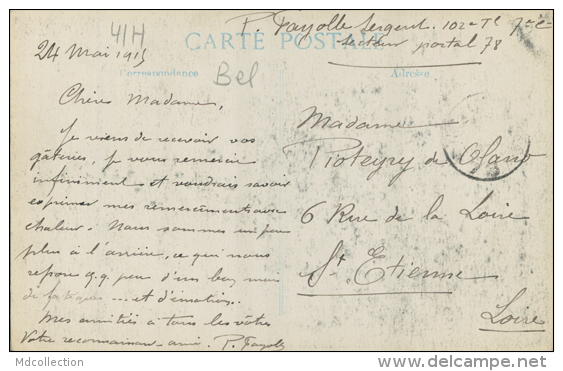 P. Fayolle Sergent. 102e Tl 7e Cie
secteur postal 78
41H
24 Mai 1915
CARTE POSTALE
Correspondance
Adresse
Bel
Chère Madame,
Je viens de recevoir vos
gâteries, je vous remercie
infiniment et voudrais savoir
exprimer mes remerciements avec
chaleur. Nous sommes un peu
plus à l'arrière, ce qui nous
repose q.q. peu d'un bon mois
de fatigues ... et d'émotion..
Mes amitiés à tous les vôtres
Votre reconnaissant ami. P. Fayolle
Madame
de
6 Rue de la Loire
St Etienne
Loire
Mdcollection
www.delcampe.net